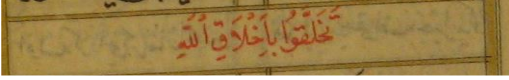 تَخَلَّقُوا بِاَخْلَاقِ اللّٰهِ